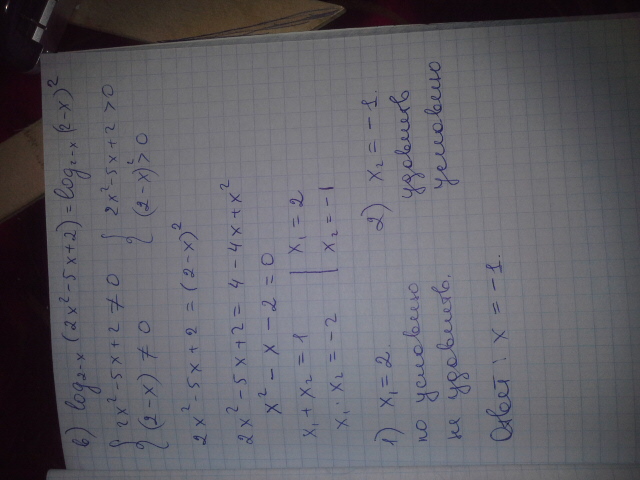 в) log₂₋ₓ(2x²-5x+2) = log₂₋ₓ(2-x)²
{ 2x²-5x+2 ≠ 0 { 2x²-5x+2 > 0
{ (2-x) ≠ 0 { (2-x)² > 0
2x²-5x+2 = (2-x)²
2x²-5x+2 = 4-4x+x²
x²-x-2 = 0
x₁+x₂ = 1 | x₁ = 2
x₁·x₂ = -2 | x₂ = -1
1) x₁ = 2. 2) x₂ = -1.
по условию удовлетв
не удовлетв. условию
Ответ: x = -1.